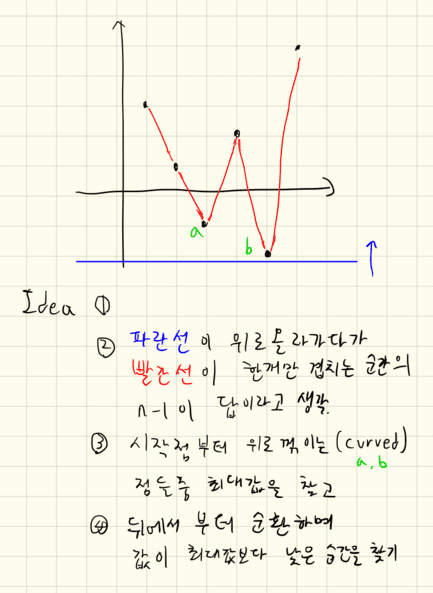 a
b
Idea ①
② 파란선이 위로 올라가다가
빨간선이 한개만 겹치는 순간의
n-1이 답이라고 생각.
③ 시작점부터 위로 꺾이는 (curved)
a, b
점들중 최대값을 찾고
④ 뒤에서 부터 순환하며
값이 최대값보다 낮은 순간을 찾기